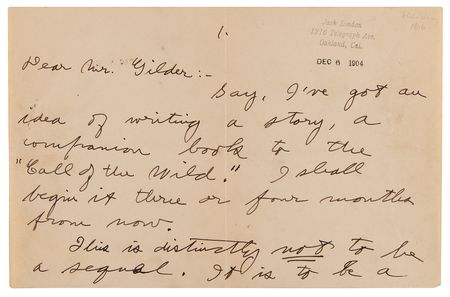 1.
Jack London
1216 Telegraph Ave.
Oakland, Cal.
DEC 6 1904
Dear Mr. Gilder:-
Say, I've got an
idea of writing a story, a
companion book to the
"Call of the Wild." I shall
begin it three or four months
from now.
This is distinctly not to be
a sequel. It is to be a